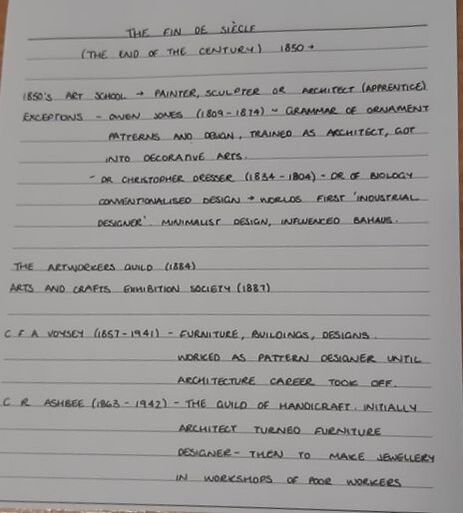 THE FIN DE SIÈCLE
(THE END OF THE CENTURY) 1850 →
1850'S ART SCHOOL → PAINTER, SCULPTER OR ARCHITECT (APPRENTICE)
EXCEPTIONS - OWEN JONES (1809-1874) ~ GRAMMAR OF ORNAMENT
PATTERNS AND DESIGN, TRAINED AS ARCHITECT, GOT
INTO DECORATIVE ARTS.
- DR CHRISTOPHER DRESSER (1834-1804) - DR OF BIOLOGY
CONVENTIONALISED DESIGN → WORLDS FIRST 'INDUSTRIAL
DESIGNER'. MINIMALIST DESIGN, INFLUENCED BAHAUS.
THE ARTWORKERS GUILD (1884)
ARTS AND CRAFTS EXHIBITION SOCIETY (1887)
C F A VOYSEY (1857-1941) - FURNITURE, BUILDINGS, DESIGNS.
WORKED AS PATTERN DESIGNER UNTIL
ARCHITECTURE CAREER TOOK OFF.
C R ASHBEE (1863-1942) - THE GUILD OF HANDICRAFT. INITIALLY
ARCHITECT TURNED FURNITURE
DESIGNER - THEN TO MAKE JEWELLERY
IN WORKSHOPS OF POOR WORKERS